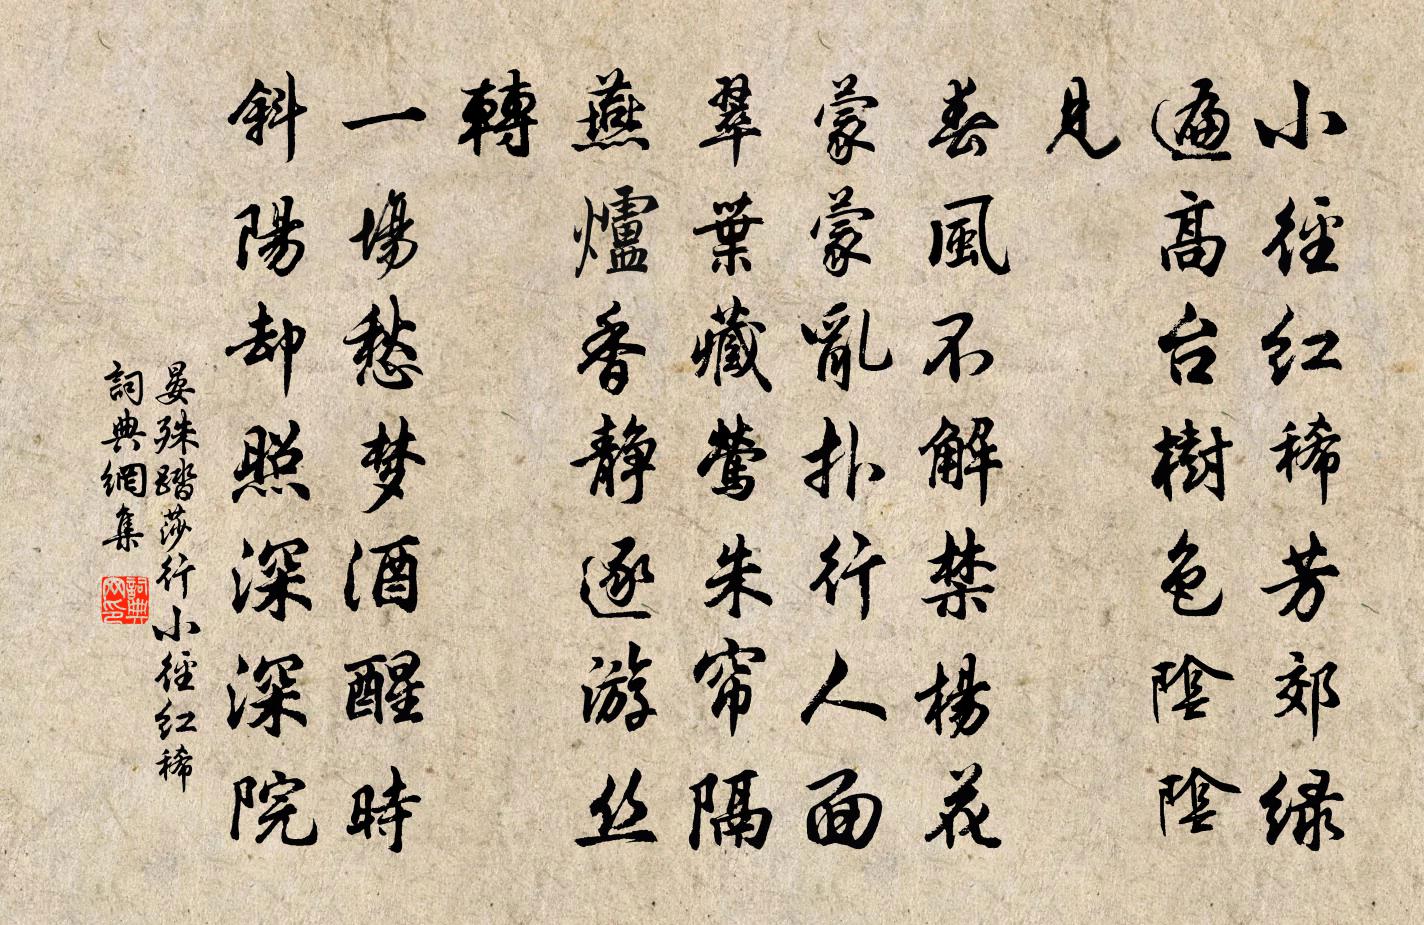 小徑红稀芳郊緑
遍高台樹色陰陰
見
春風不解禁楊花
蒙蒙亂扑行人面
翠葉藏鶯朱帘隔
燕爐香静逐游丝
轉
一場愁梦酒醒時
斜陽却照深深院
晏殊踏莎行小徑红稀
詞典網集
詞典
网印